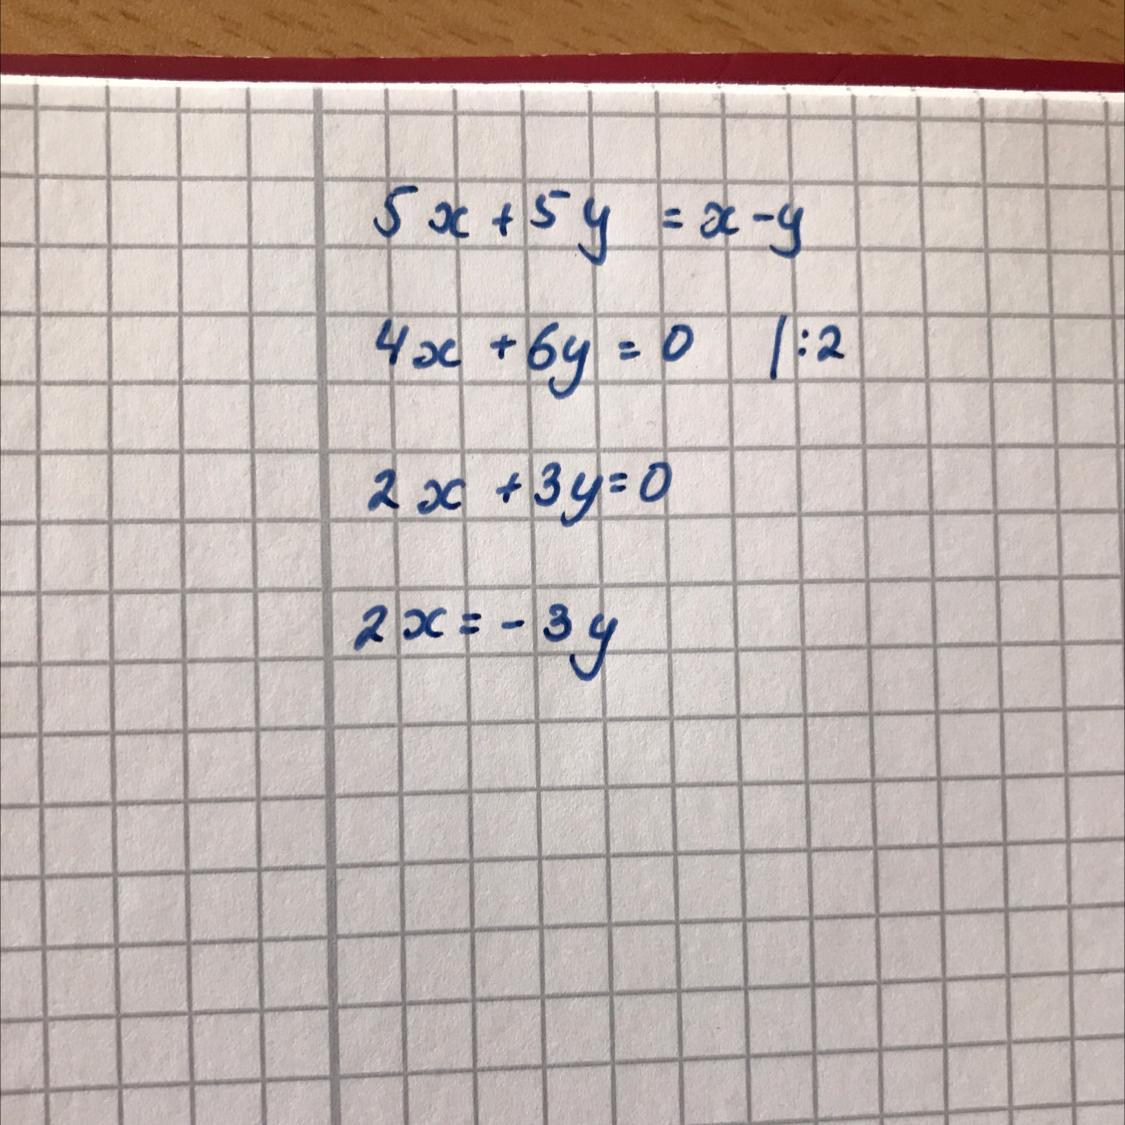 5x + 5y = x - y
4x + 6y = 0 |:2
2x + 3y = 0
2x = - 3y